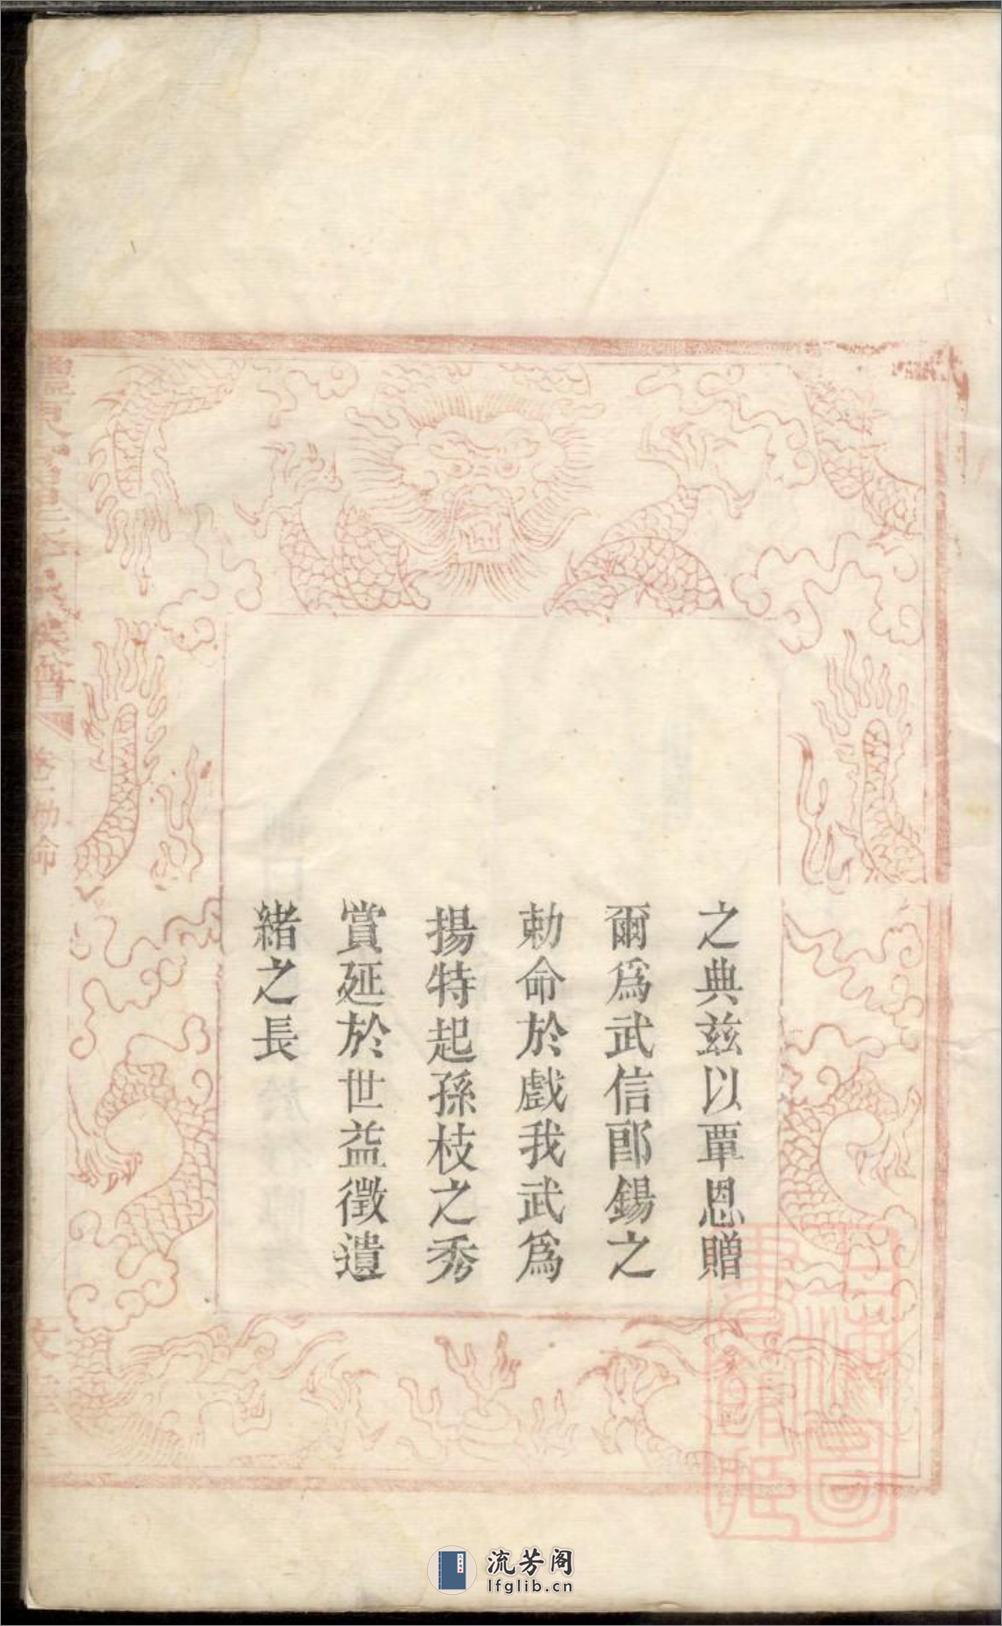 之典兹以覃恩贈
爾爲武信郎錫之
勅命於戲我武爲
揚特起孫枝之秀
賞延於世益徵遺
緒之長
族譜
勅命
流芳阁
lfglib.cn